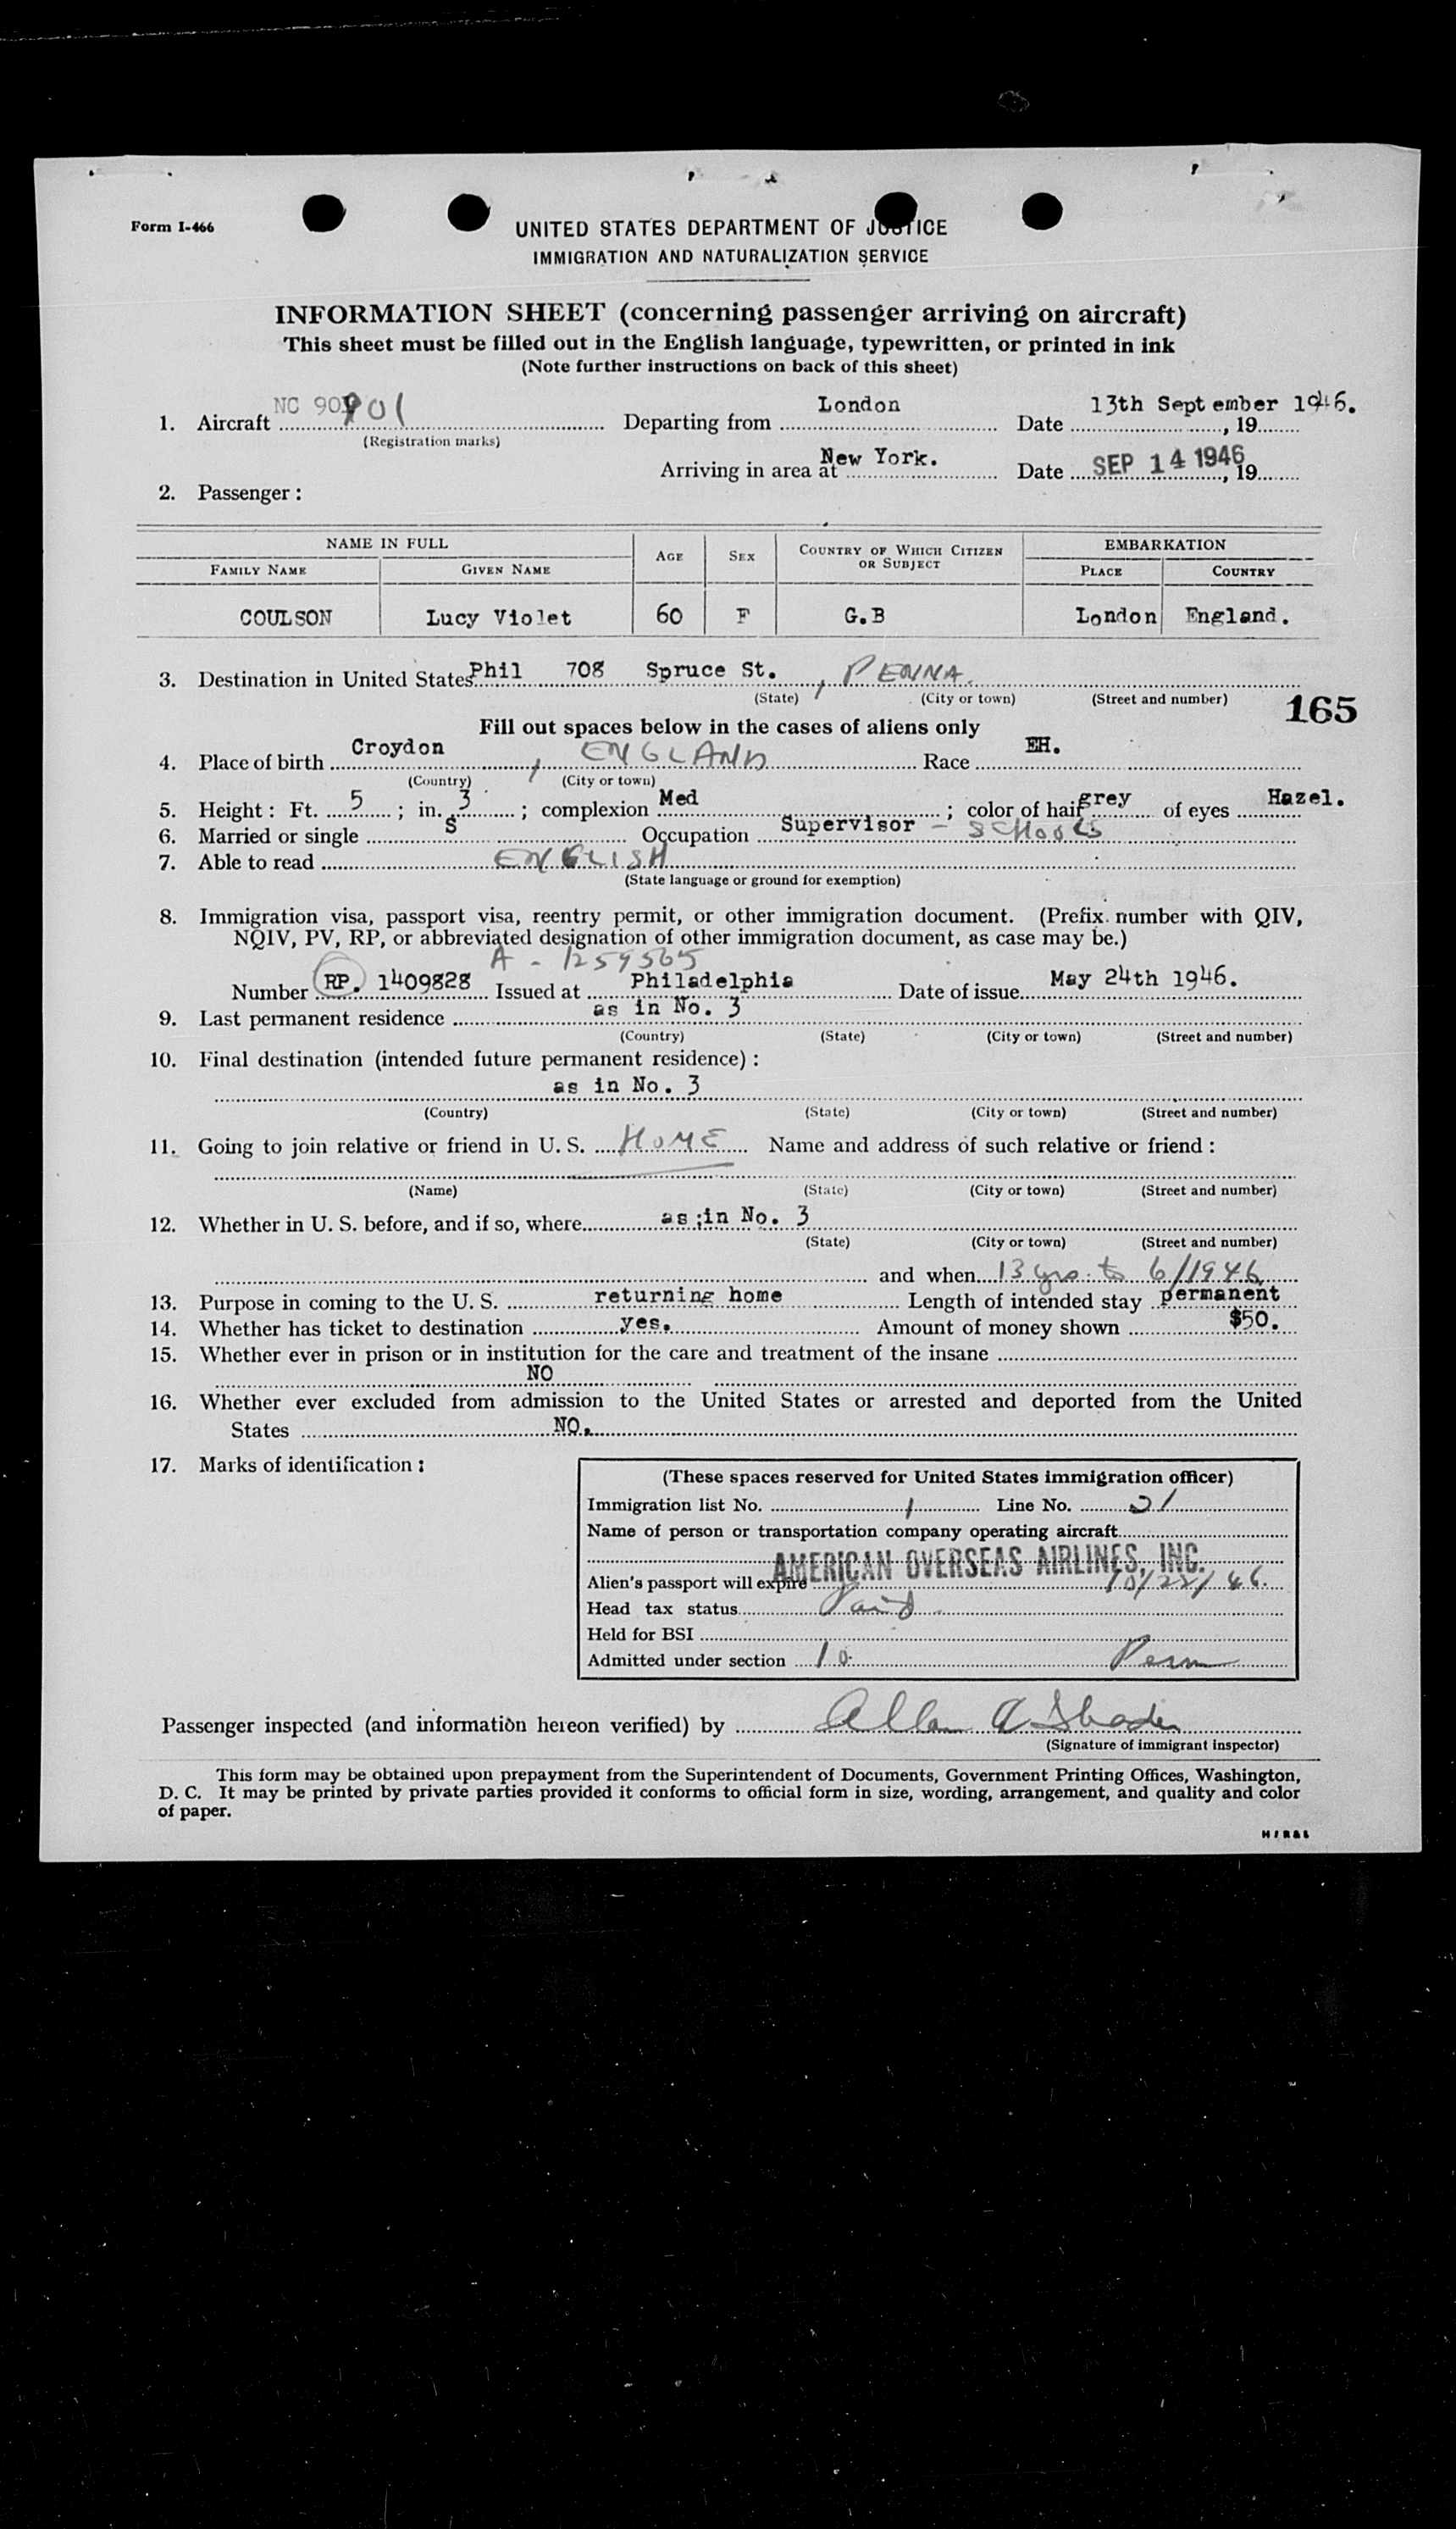 Form I-466
UNITED STATES DEPARTMENT OF JUSTICE
IMMIGRATION AND NATURALIZATION SERVICE
INFORMATION SHEET (concerning passenger arriving on aircraft)
This sheet must be filled out in the English language, typewritten, or printed in ink
(Note further instructions on back of this sheet)
1. Aircraft NC 90 901 Departing from London Date 13th Sept ember 1946. , 19
(Registration marks)
Arriving in area at New York. Date SEP 14 1946, 19
2. Passenger :
NAME IN FULL AGE SEX COUNTRY OF WHICH CITIZEN OR SUBJECT EMBARKATION
FAMILY NAME GIVEN NAME PLACE COUNTRY
COULSON Lucy Violet 60 F G.B London England.
3. Destination in United States Phil 708 Spruce St. , PENNA.
(State) (City or town) (Street and number)
165
Fill out spaces below in the cases of aliens only
4. Place of birth Croydon , ENGLAND Race EH.
(Country) (City or town)
5. Height : Ft. 5 ; in. 3 ; complexion Med ; color of hair grey of eyes Hazel.
6. Married or single S Occupation Supervisor - SCHOOLS
7. Able to read ENGLISH
(State language or ground for exemption)
8. Immigration visa, passport visa, reentry permit, or other immigration document. (Prefix number with QIV,
NQIV, PV, RP, or abbreviated designation of other immigration document, as case may be.)
A - 1259565
Number RP. 1409828 Issued at Philadelphia Date of issue May 24th 1946.
9. Last permanent residence as in No. 3
(Country) (State) (City or town) (Street and number)
10. Final destination (intended future permanent residence) :
as in No. 3
(Country) (State) (City or town) (Street and number)
11. Going to join relative or friend in U. S. HOME Name and address of such relative or friend :
(Name) (State) (City or town) (Street and number)
12. Whether in U. S. before, and if so, where as in No. 3
(State) (City or town) (Street and number)
and when 13 yrs. to 6/1946
13. Purpose in coming to the U. S. returning home Length of intended stay permanent
14. Whether has ticket to destination yes. Amount of money shown $50.
15. Whether ever in prison or in institution for the care and treatment of the insane
NO
16. Whether ever excluded from admission to the United States or arrested and deported from the United
States NO.
17. Marks of identification :
(These spaces reserved for United States immigration officer)
Immigration list No. 1 Line No. 21
Name of person or transportation company operating aircraft
AMERICAN OVERSEAS AIRLINES, INC.
Alien's passport will expire 10/22/46.
Head tax status Paid.
Held for BSI
Admitted under section 10 Perm
Passenger inspected (and information hereon verified) by Allan A Shader
(Signature of immigrant inspector)
This form may be obtained upon prepayment from the Superintendent of Documents, Government Printing Offices, Washington,
D. C. It may be printed by private parties provided it conforms to official form in size, wording, arrangement, and quality and color
of paper.